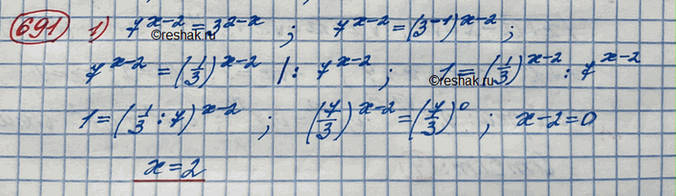 691 1) 7^(x-2) = 3^(2-x) ; 7^(x-2) = (3^(-1))^(x-2) ;
©reshak.ru
7^(x-2) = (1/3)^(x-2) | : 7^(x-2) ; 1 = (1/3)^(x-2) : 7^(x-2)
©reshak.ru
1 = (1/3 : 7)^(x-2) ; (7/3)^(x-2) = (7/3)^0 ; x-2=0
x=2